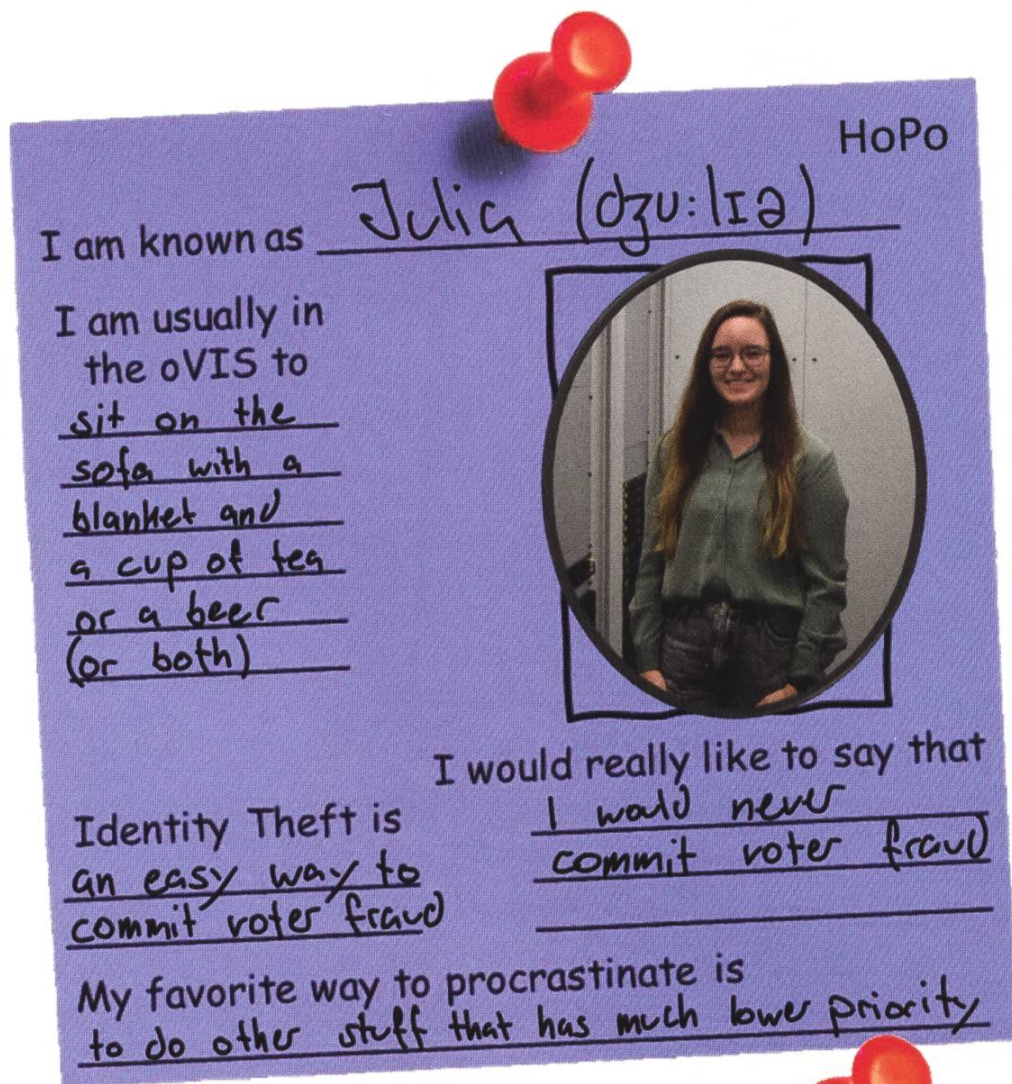 HoPo
I am known as Julia (dʒu:lɪə)
I am usually in
the oVIS to
sit on the
sofa with a
blanket and
a cup of tea
or a beer
(or both)
I would really like to say that
I would never
commit voter fraud
Identity Theft is
an easy way to
commit voter fraud
My favorite way to procrastinate is
to do other stuff that has much lower priority